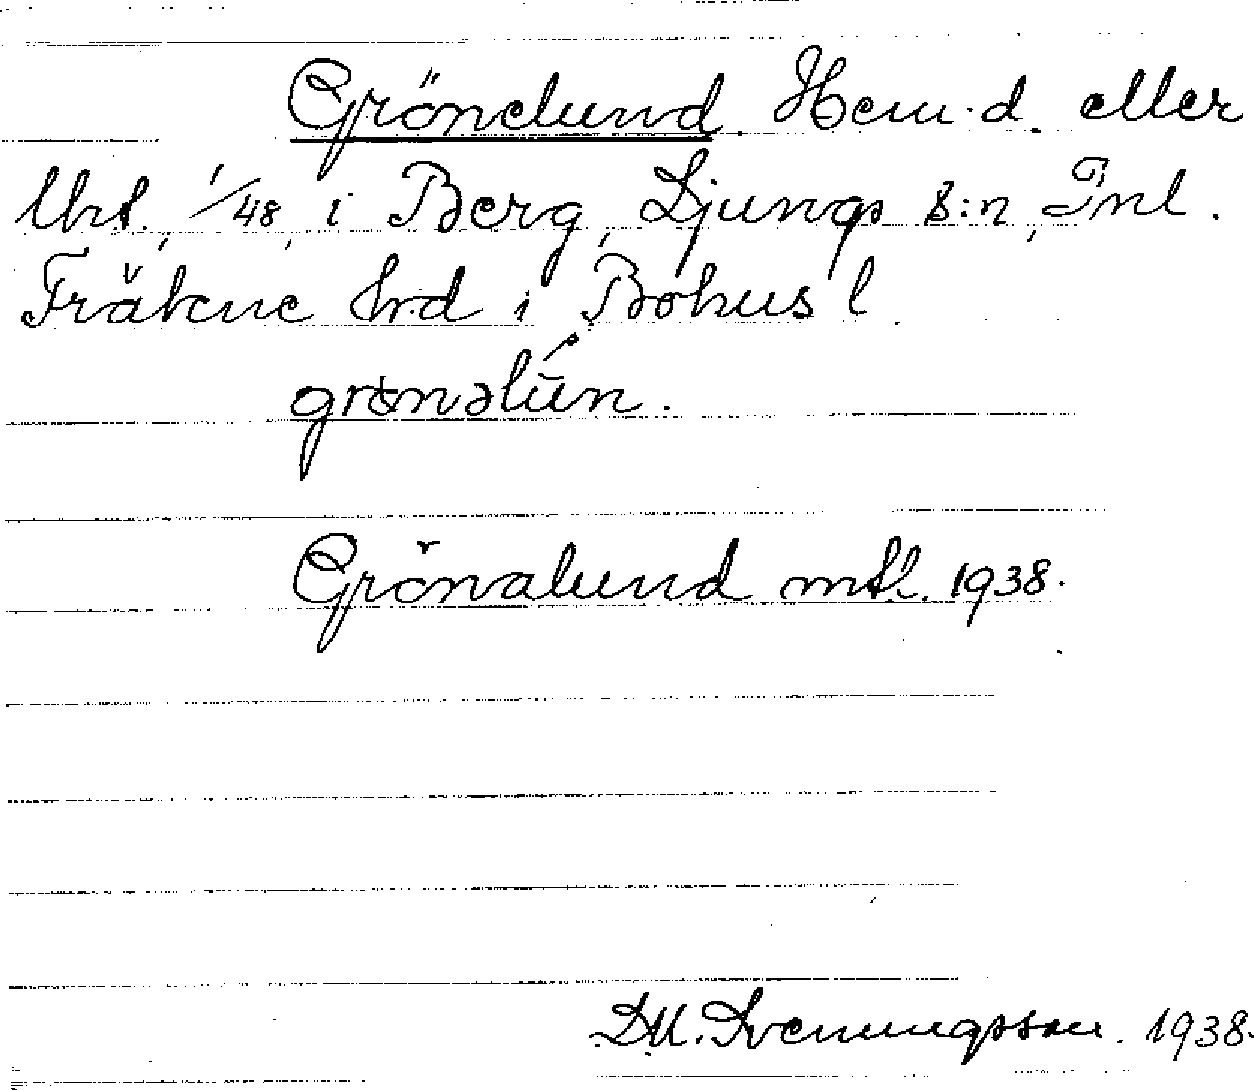 Grönelund. Hem.d. eller
lht., 1/48, i Berg, Ljungs s:n, Inl.
Fräkne hrd i Bohus l
grönəlūn.
Grönalund mtl. 1938.
D.U. Svenungsson. 1938.